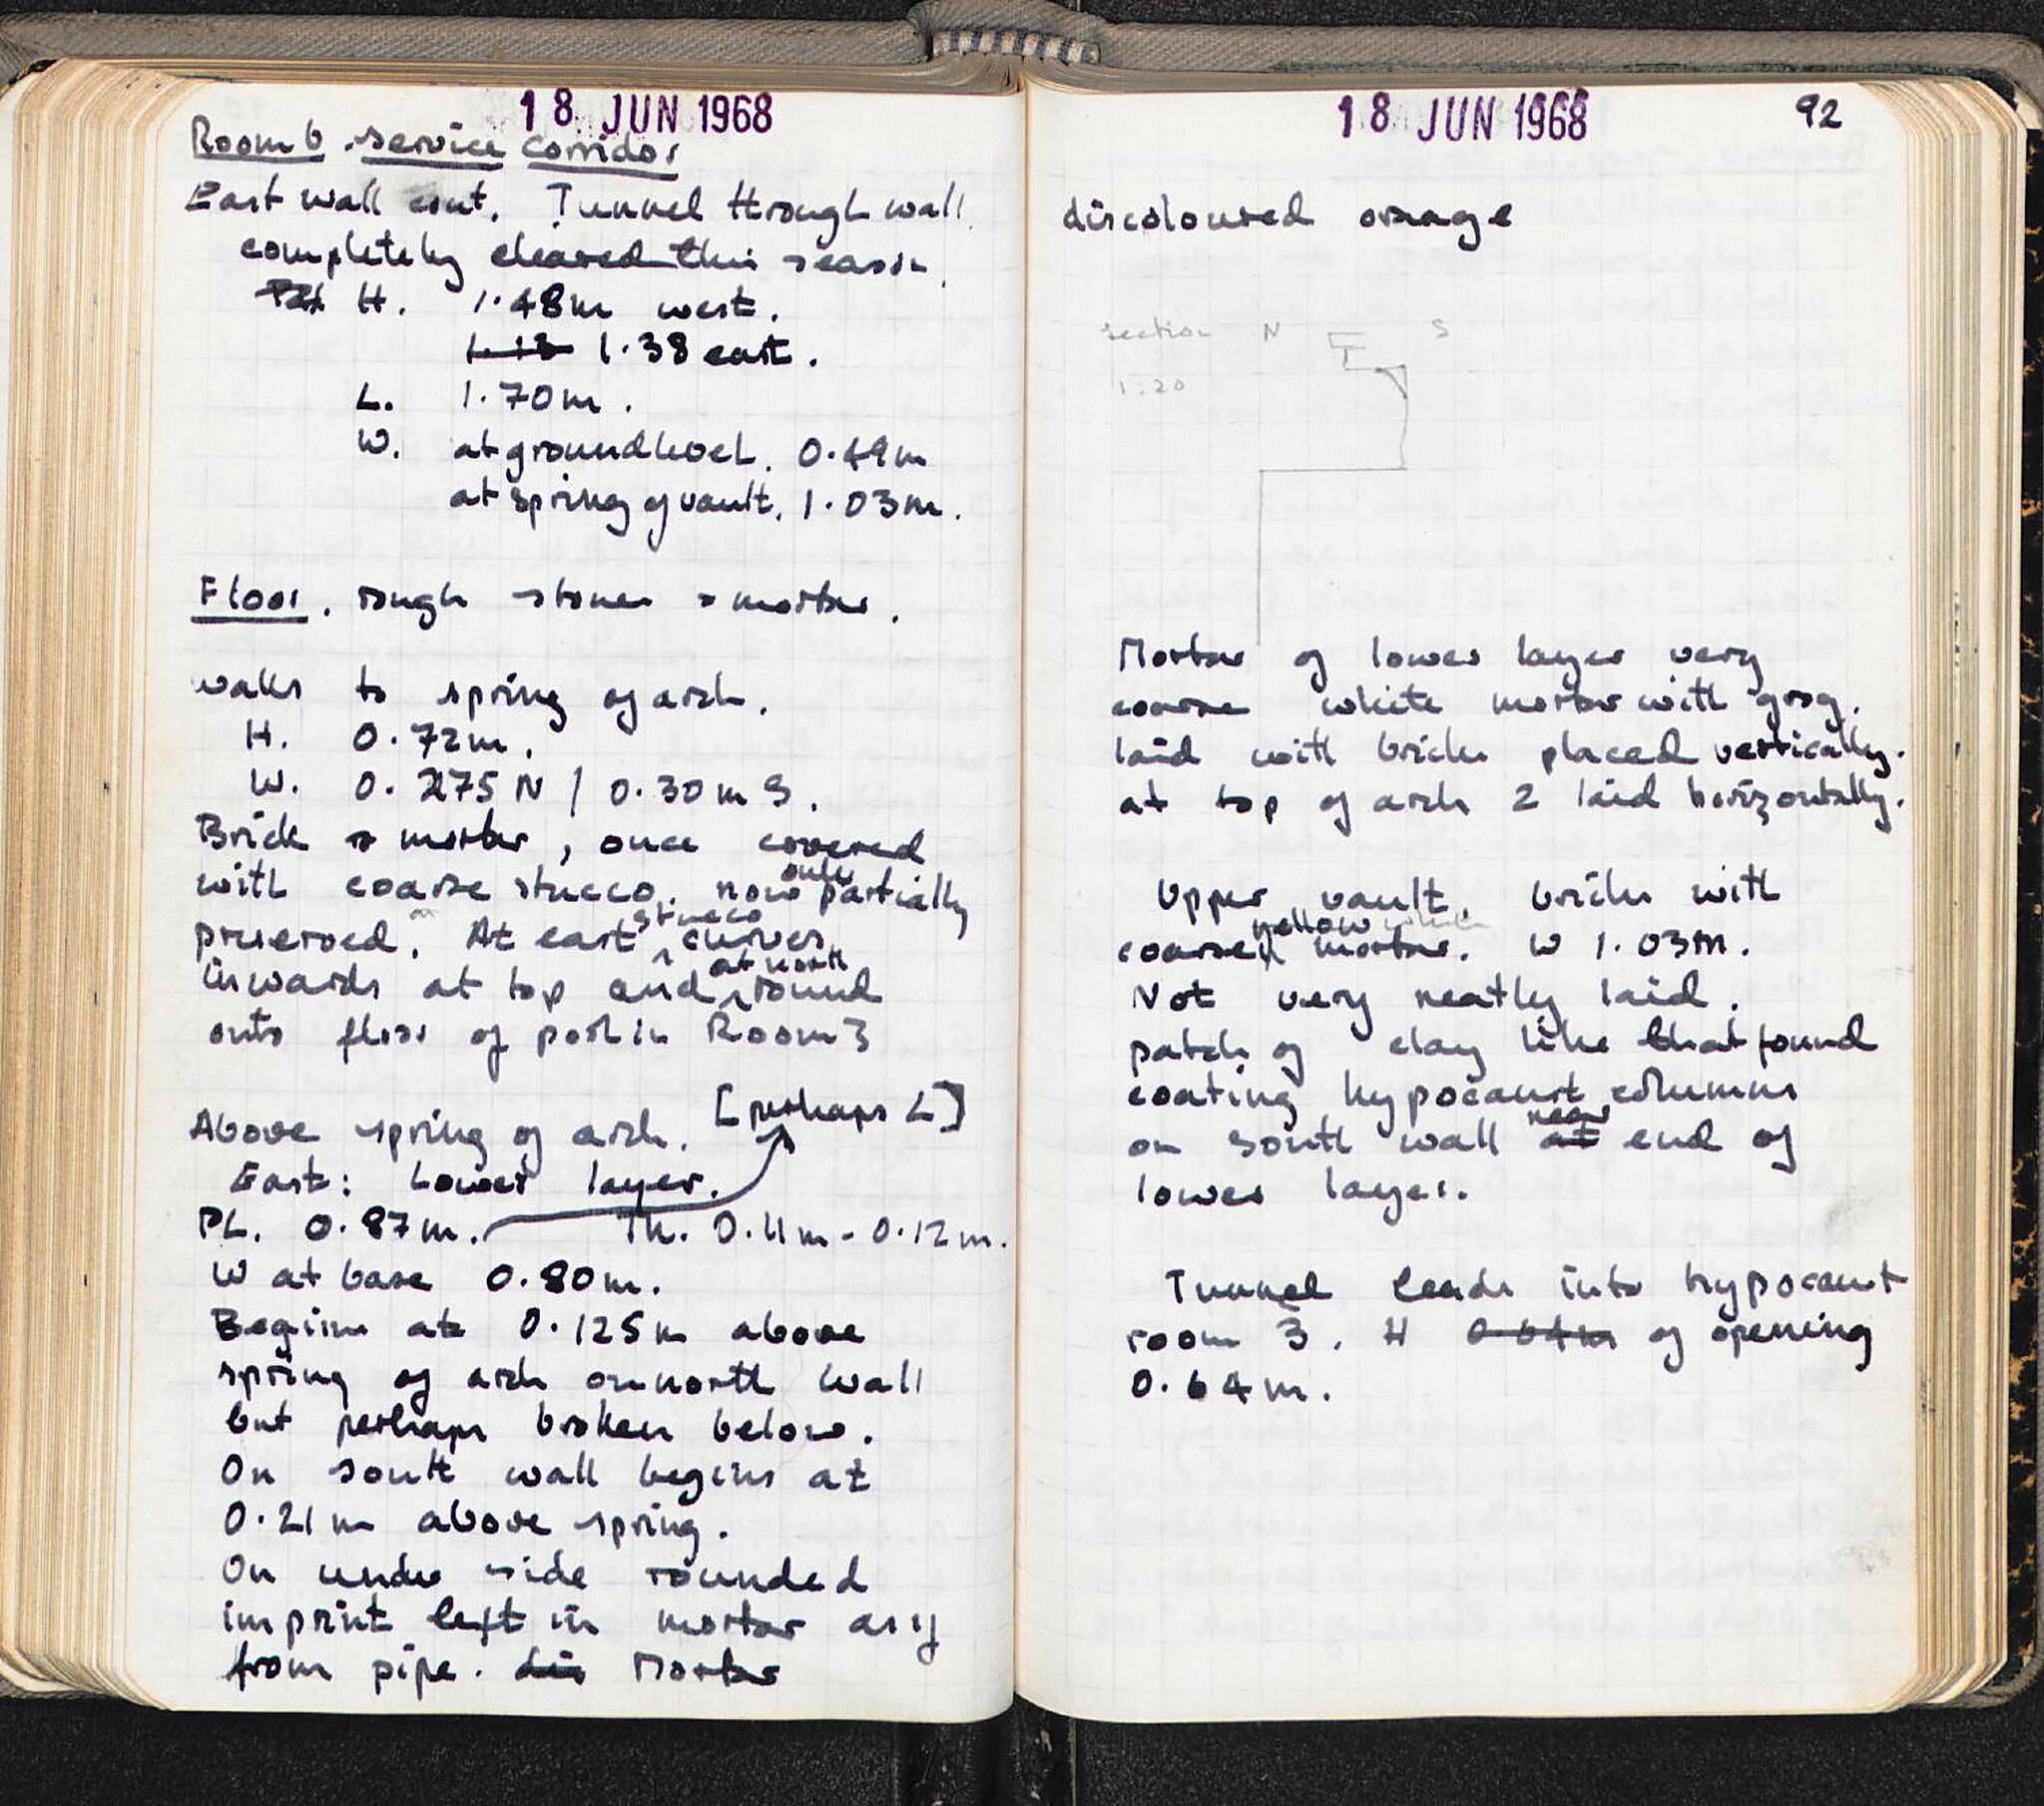 18 JUN 1968
Room 6 service corridor
East wall cont. Tunnel through wall
completely cleared this season.
H. 1.48m west.
1.13 1.38 east.
L. 1.70m.
W. at ground level. 0.49m
at spring of vault. 1.03m.
Floor. rough stones & mortar.
walls to spring of arch.
H. 0.72m.
W. 0.275 N / 0.30m S.
Brick & mortar, once covered
with coarse stucco. now only partially
preserved. At east stucco curves
inwards at top and at north round
onto floor of pool in Room 3
Above spring of arch. [perhaps L]
East: Lower layer.
PL. 0.87m. Th. 0.11m - 0.12m.
W at base 0.80m.
Begins at 0.125m above
spring of arch on north wall
but perhaps broken below.
On south wall begins at
0.21m above spring.
On under side rounded
imprint left in mortar as if
from pipe. dis Mortar
18 JUN 1968
92
discoloured orange
section N S
1:20
Mortar of lower layer very
coarse white mortar with grog.
laid with bricks placed vertically.
at top of arch 2 laid horizontally.
Upper vault. bricks with
coarse yellow white mortar. W 1.03m.
Not very neatly laid.
patch of clay like that found
coating hypocaust columns
on south wall at near end of
lower layer.
Tunnel leads into hypocaust
room 3. H 0.64m of opening
0.64m.